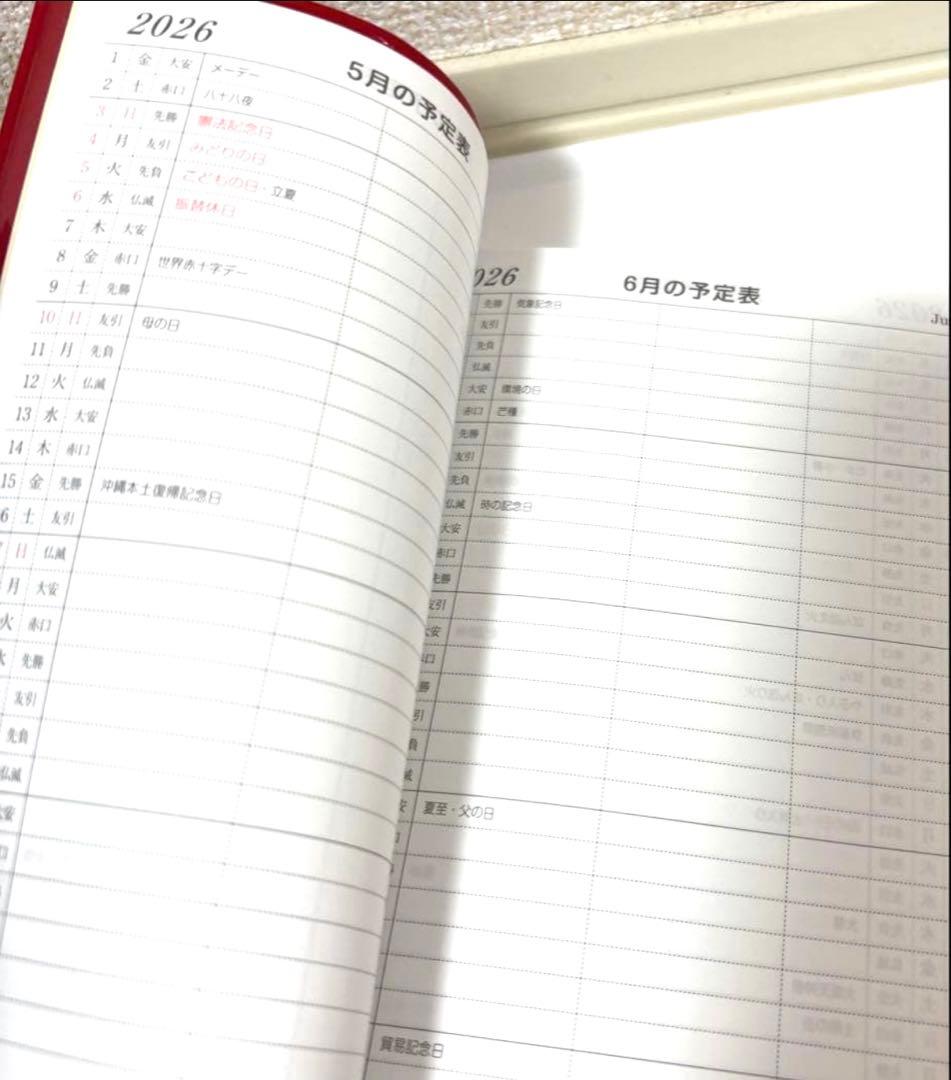 2026
5月の予定表
1 金 大安 メーデー
2 土 赤口 八十八夜
3 日 先勝 憲法記念日
4 月 友引 みどりの日
5 火 先負 こどもの日・立夏
6 水 仏滅 振替休日
7 木 大安
8 金 赤口 世界赤十字デー
9 土 先勝
10 日 友引 母の日
11 月 先負
12 火 仏滅
13 水 大安
14 木 赤口
15 金 先勝 沖縄本土復帰記念日
6 土 友引
日 仏滅
月 大安
火 赤口
先勝
友引
先負
仏滅
026
6月の予定表
Ju
先勝 気象記念日
友引
先負
仏滅
大安 環境の日
赤口 芒種
先勝
友引
先負
仏滅 時の記念日
大安
赤口
先勝
友引
大安
口
勝
引
負
夏至・父の日
貿易記念日